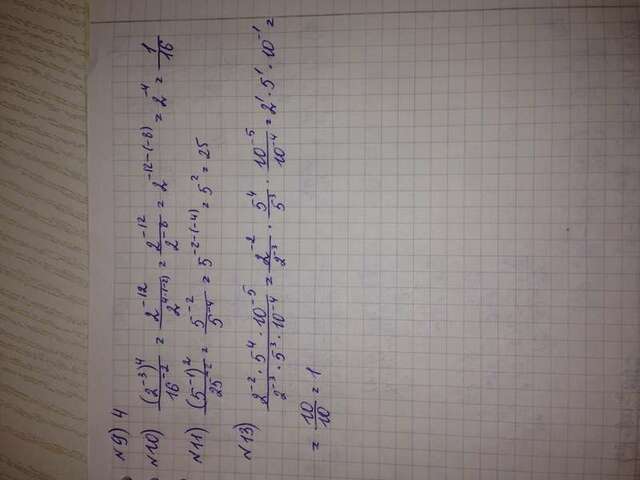 №9) 4
№10) (2^-3)^4 / 16^-2 = 2^-12 / 2^4·(-2) = 2^-12 / 2^-8 = 2^-12-(-8) = 2^-4 = 1/16
№11) (5^-1)^2 / 25^-2 = 5^-2 / 5^-4 = 5^-2-(-4) = 5^2 = 25
№13) 2^-2 · 5^4 · 10^-5 / 2^-3 · 5^3 · 10^-4 = 2^-2 / 2^-3 · 5^4 / 5^3 · 10^-5 / 10^-4 = 2^1 · 5^1 · 10^-1 =
= 10/10 = 1